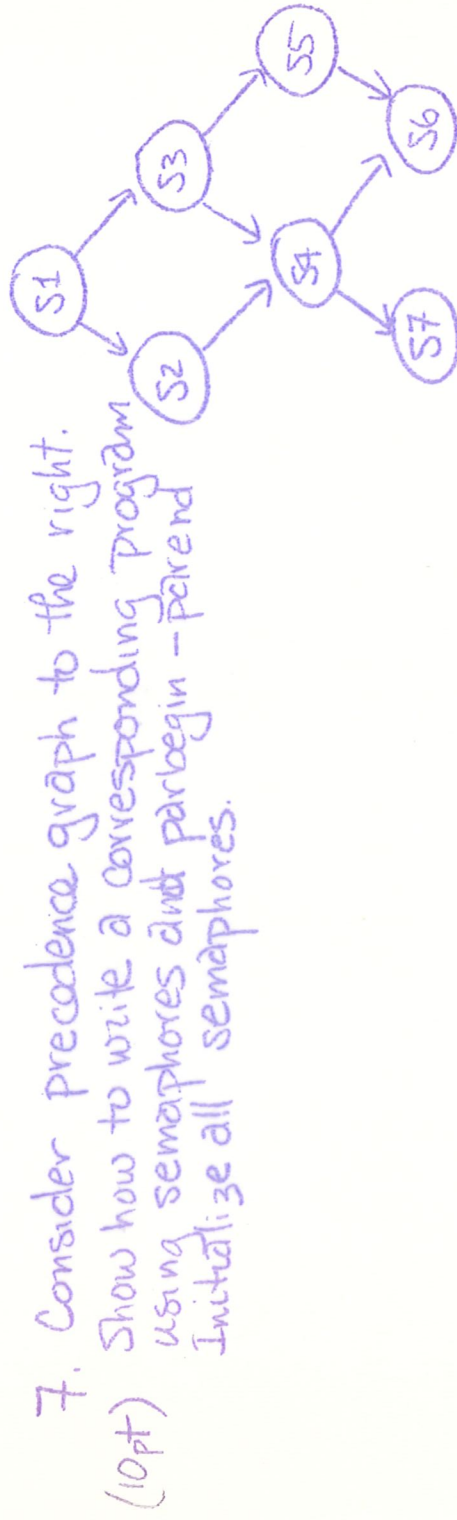 7. Consider precedence graph to the right.
(10pt) Show how to write a corresponding program
using semaphores and parbegin – parend
Initialize all semaphores.
S1
S2
S3
S4
S5
S7
S6